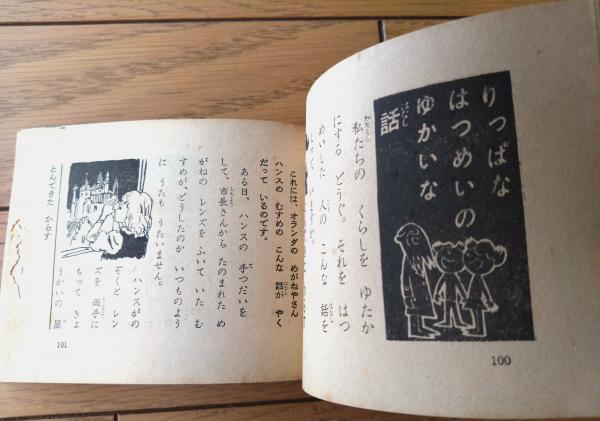 りっぱな
はつめいの
ゆかいな
話
はなし
私たちの くらしを ゆたか
わたくし
にする どうぐ。それを はつ
めいした 人の こんな 話を
はなし
100
これには、オランダの めがねやさん
ハンスの むすめの こんな 話が やく
だって いるのです。
ある日、ハンスの 手つだいを
して、市長さんから たのまれた め
しちょう
がねの レンズを ふいて いた む
すめが、どうしたのか いつものよう
に うたも うたいません。
ハンスがの
ぞくと レン
ズを 両手に
もって きょ
うかいの 屋
とんできた からす
101